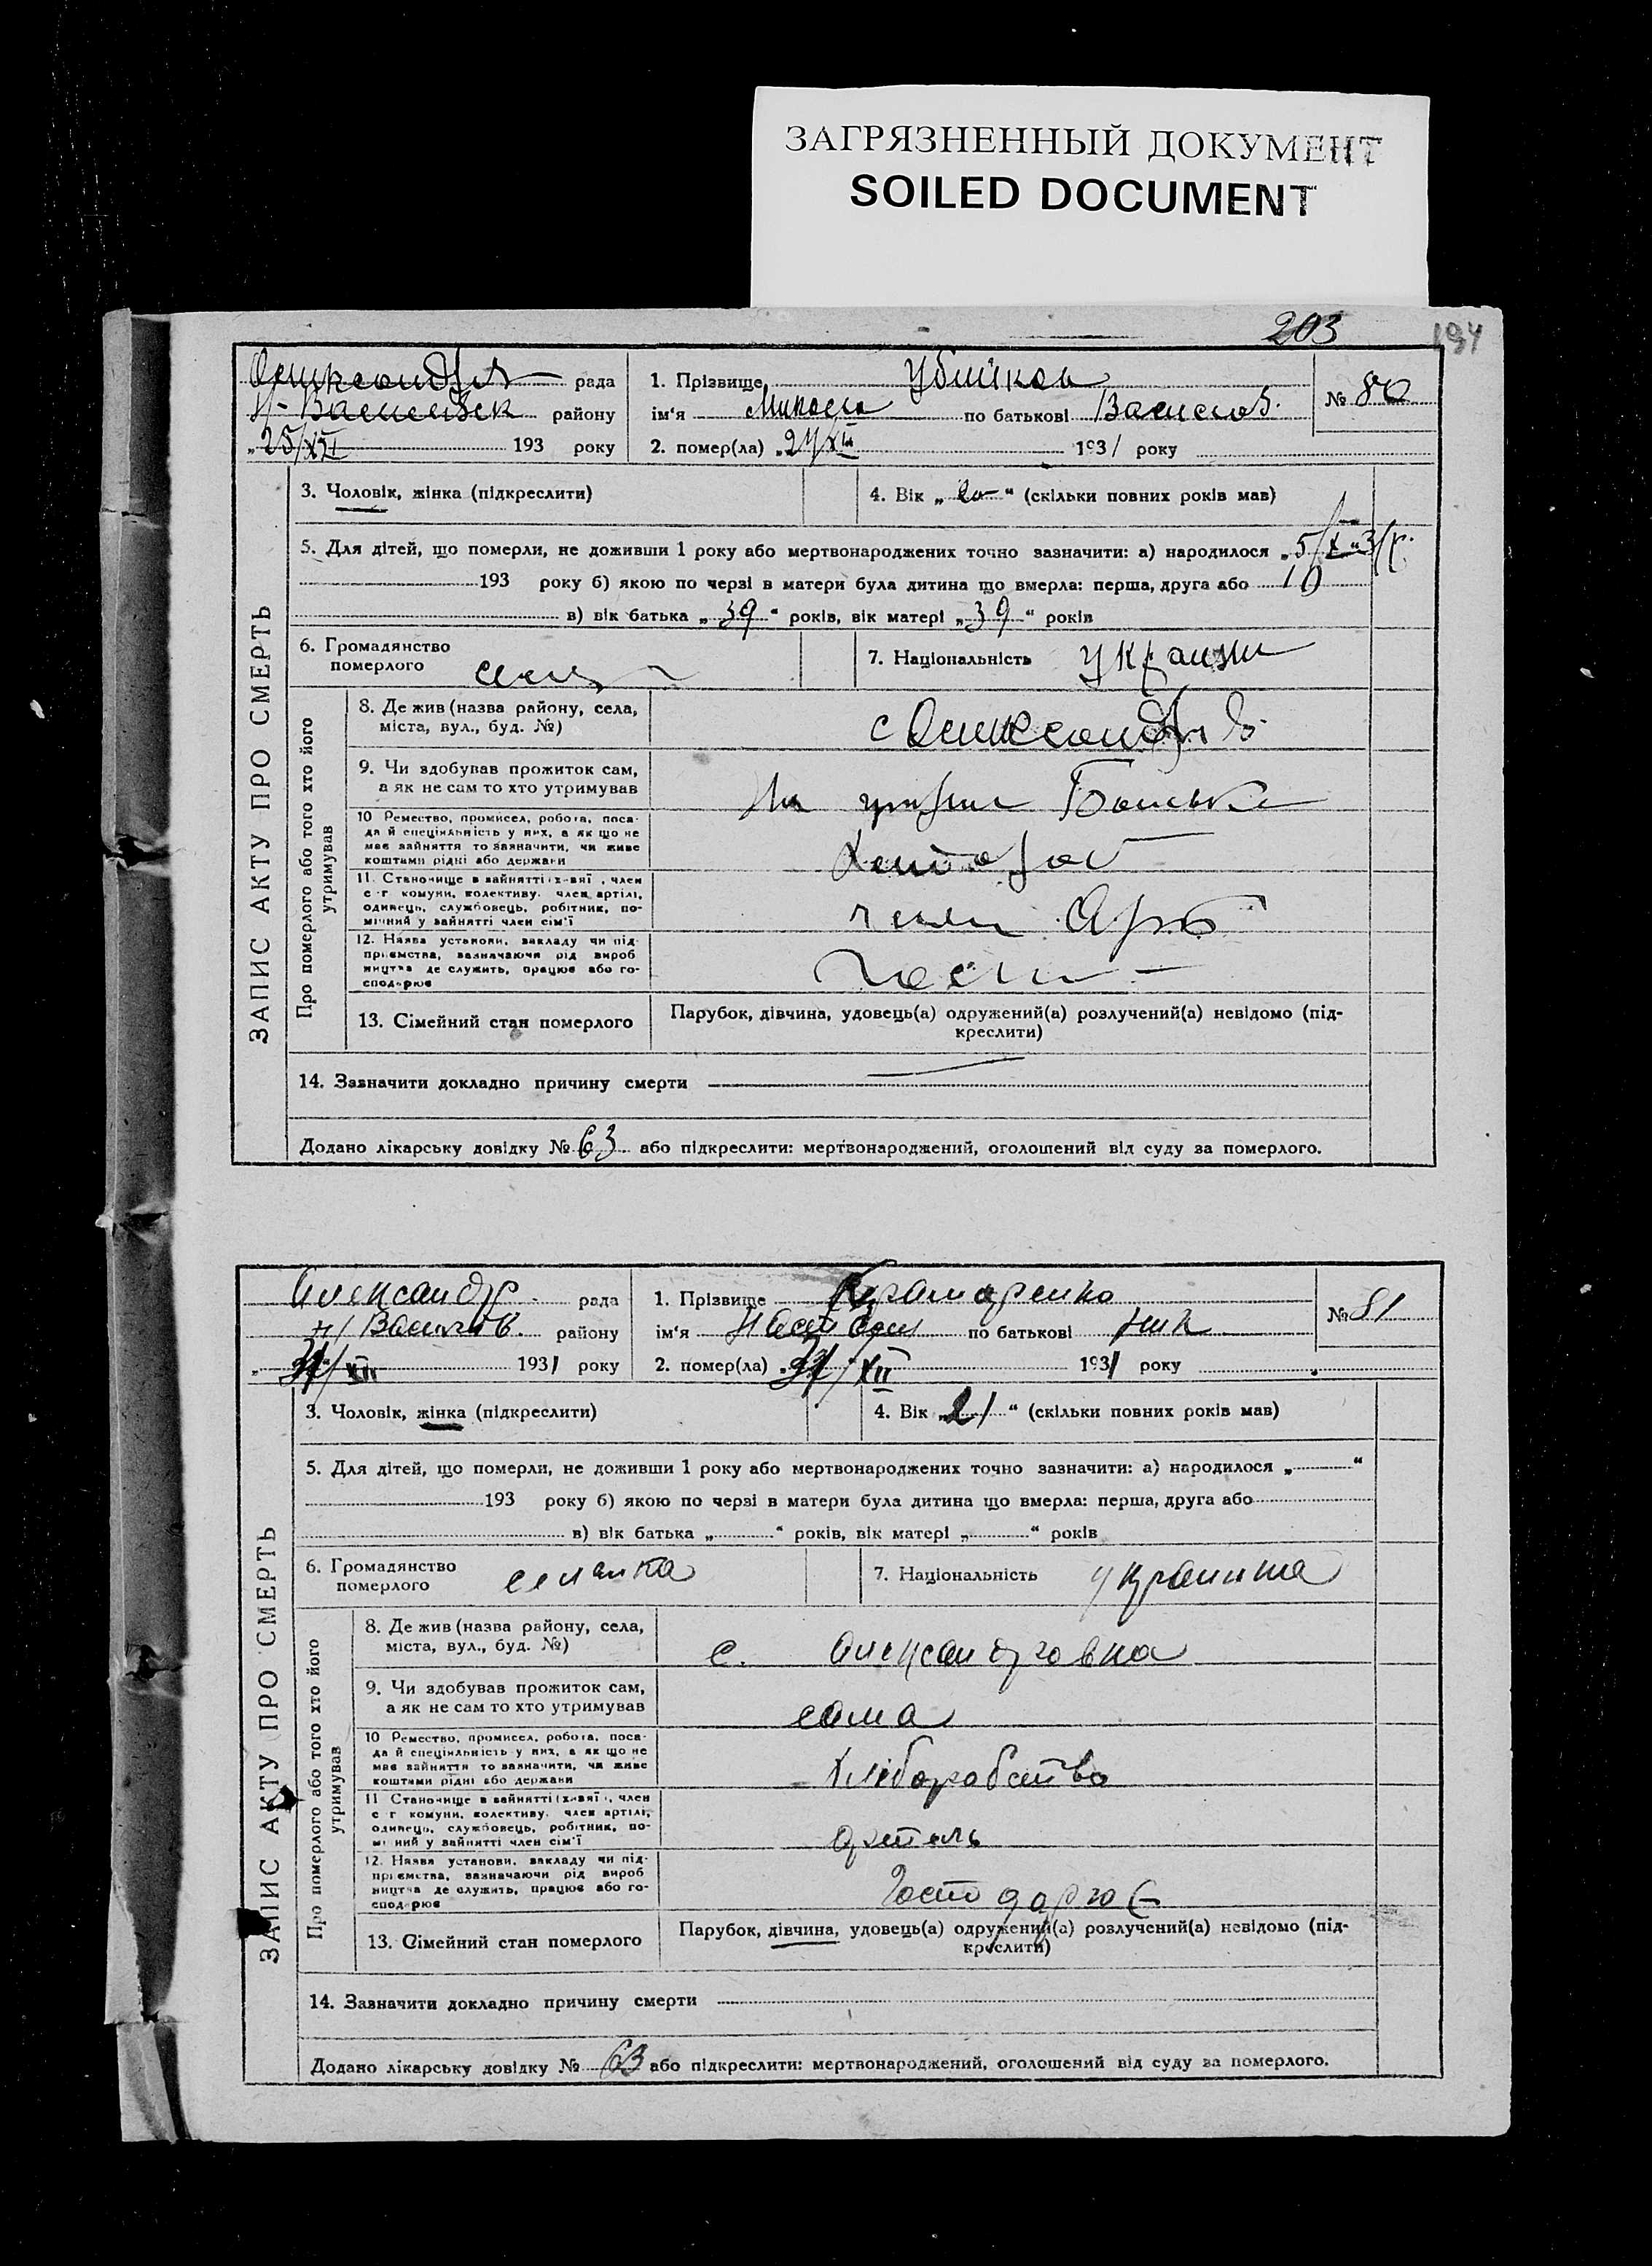 ЗАГРЯЗНЕННЫЙ ДОКУМЕНТ
SOILED DOCUMENT
203
194
рада
району
„25/XII 193 року
1. Прізвище
ім'я Микола по батькові Васильов.
2. помер(ла) „24/XII 1931 року
№ 80
ЗАПИС АКТУ ПРО СМЕРТЬ
3. Чоловік, жінка (підкреслити)
4. Вік „ “ (скільки повних років мав)
5. Для дітей, що померли, не доживши 1 року або мертвонароджених точно зазначити: а) народилося „5/X
193 року б) якою по черзі в матери була дитина що вмерла: перша, друга або 10
в) вік батька „39“ років, вік матері „39“ років
6. Громадянство
померлого
7. Національність
Про померлого або того хто його
утримував
8. Де жив (назва району, села,
міста, вул., буд. №)
9. Чи здобував прожиток сам,
а як не сам то хто утримував
Батька
10 Ремество, промисел, робота, поса-
да й спеціяльність у них, а як що не
має зайняття то зазначити, чи живе
коштами рідні або держави
11. Становище в зайнятті (х-вяї , член
с г комуни, колективу. член артілі,
одинець, службовець, робітник, по-
мічний у зайнятті член сім'ї
член Арт
12. Назва установи, закладу чи під-
приємства, зазначаючи рід вироб
ництва де служить, працює або го-
сподарює
13. Сімейний стан померлого
Парубок, дівчина, удовець(а) одружений(а) розлучений(а) невідомо (під-
креслити)
14. Зазначити докладно причину смерти
Додано лікарську довідку № 63 або підкреслити: мертвонароджений, оголошений від суду за померлого.
Александр. рада
Н/Васильів. району
31/XII 1931 року
1. Прізвище Крамаренко
ім'я по батькові
2. помер(ла) „31/XII 1931 року
№ 81
ЗАПИС АКТУ ПРО СМЕРТЬ
3. Чоловік, жінка (підкреслити)
4. Вік „21“ (скільки повних років мав)
5. Для дітей, що померли, не доживши 1 року або мертвонароджених точно зазначити: а) народилося „ “
193 року б) якою по черзі в матери була дитина що вмерла: перша, друга або
в) вік батька „ “ років, вік матері „ “ років
6. Громадянство
померлого
селянка
7. Національність
українка
Про померлого або того хто його
утримував
8. Де жив (назва району, села,
міста, вул., буд. №)
с. Александровка
9. Чи здобував прожиток сам,
а як не сам то хто утримував
сама
10 Ремество, промисел, робота, поса-
да й спеціяльність у них, а як що не
має зайняття то зазначити, чи живе
коштами рідні або держави
Хліборобство
11 Становище в зайнятті (х-вяї , член
с г комуни, колективу. член артілі,
одинець, службовець, робітник, по-
мічний у зайнятті член сім'ї
артель
12. Назва установи, закладу чи під-
приємства, зазначаючи рід вироб
ництва де служить, працює або го-
сподарює
Господарює
13. Сімейний стан померлого
Парубок, дівчина, удовець(а) одружений(а) розлучений(а) невідомо (під-
креслити)
14. Зазначити докладно причину смерти
Додано лікарську довідку № 63 або підкреслити: мертвонароджений, оголошений від суду за померлого.